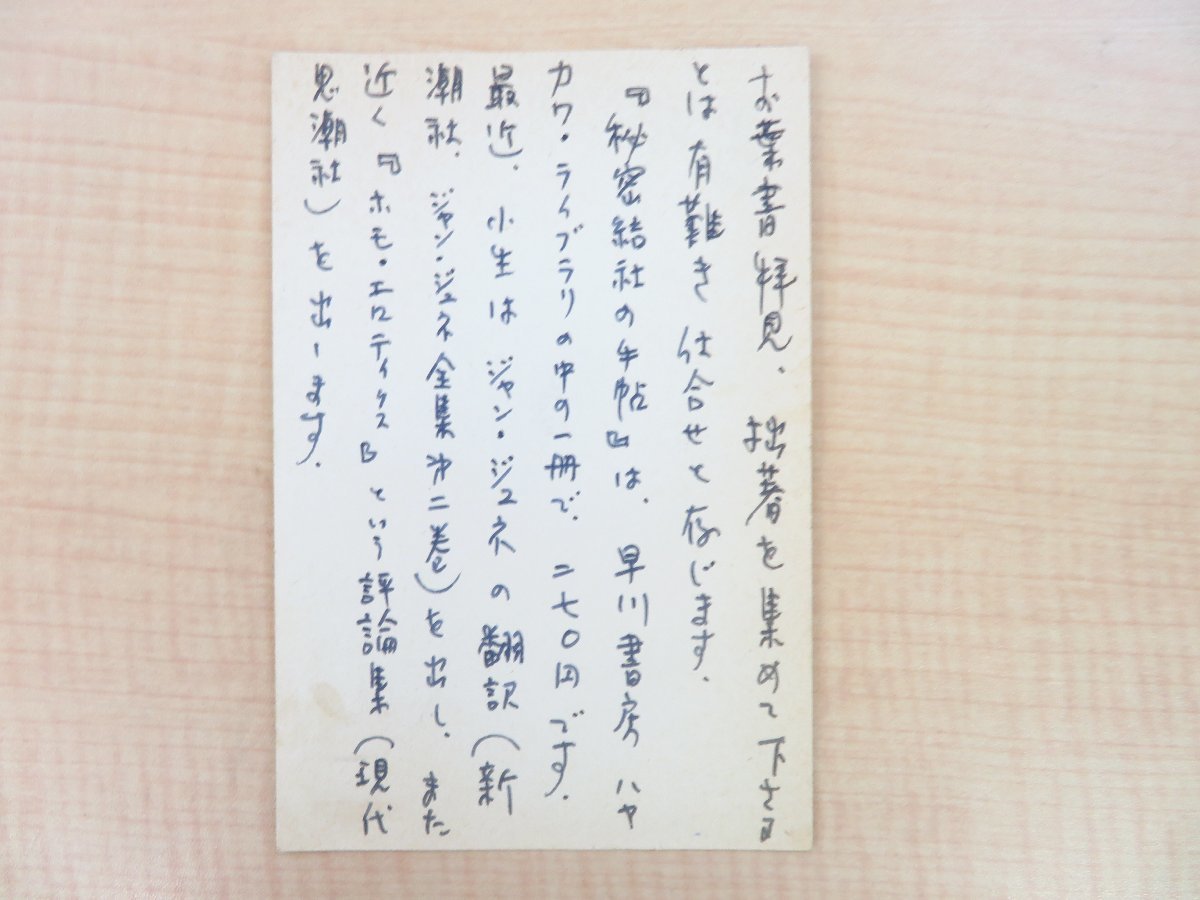 お葉書拝見、拙著を集めて下さる
とは有難き仕合せと存じます。
『秘密結社の手帖』は、早川書房ハヤ
カワ・ライブラリの中の一冊で、二七〇円です。
最近、小生はジャン・ジュネの翻訳（新
潮社、ジャン・ジュネ全集第二巻）を出し、また
近く『ホモ・エロティクス』という評論集（現代
思潮社）を出します。